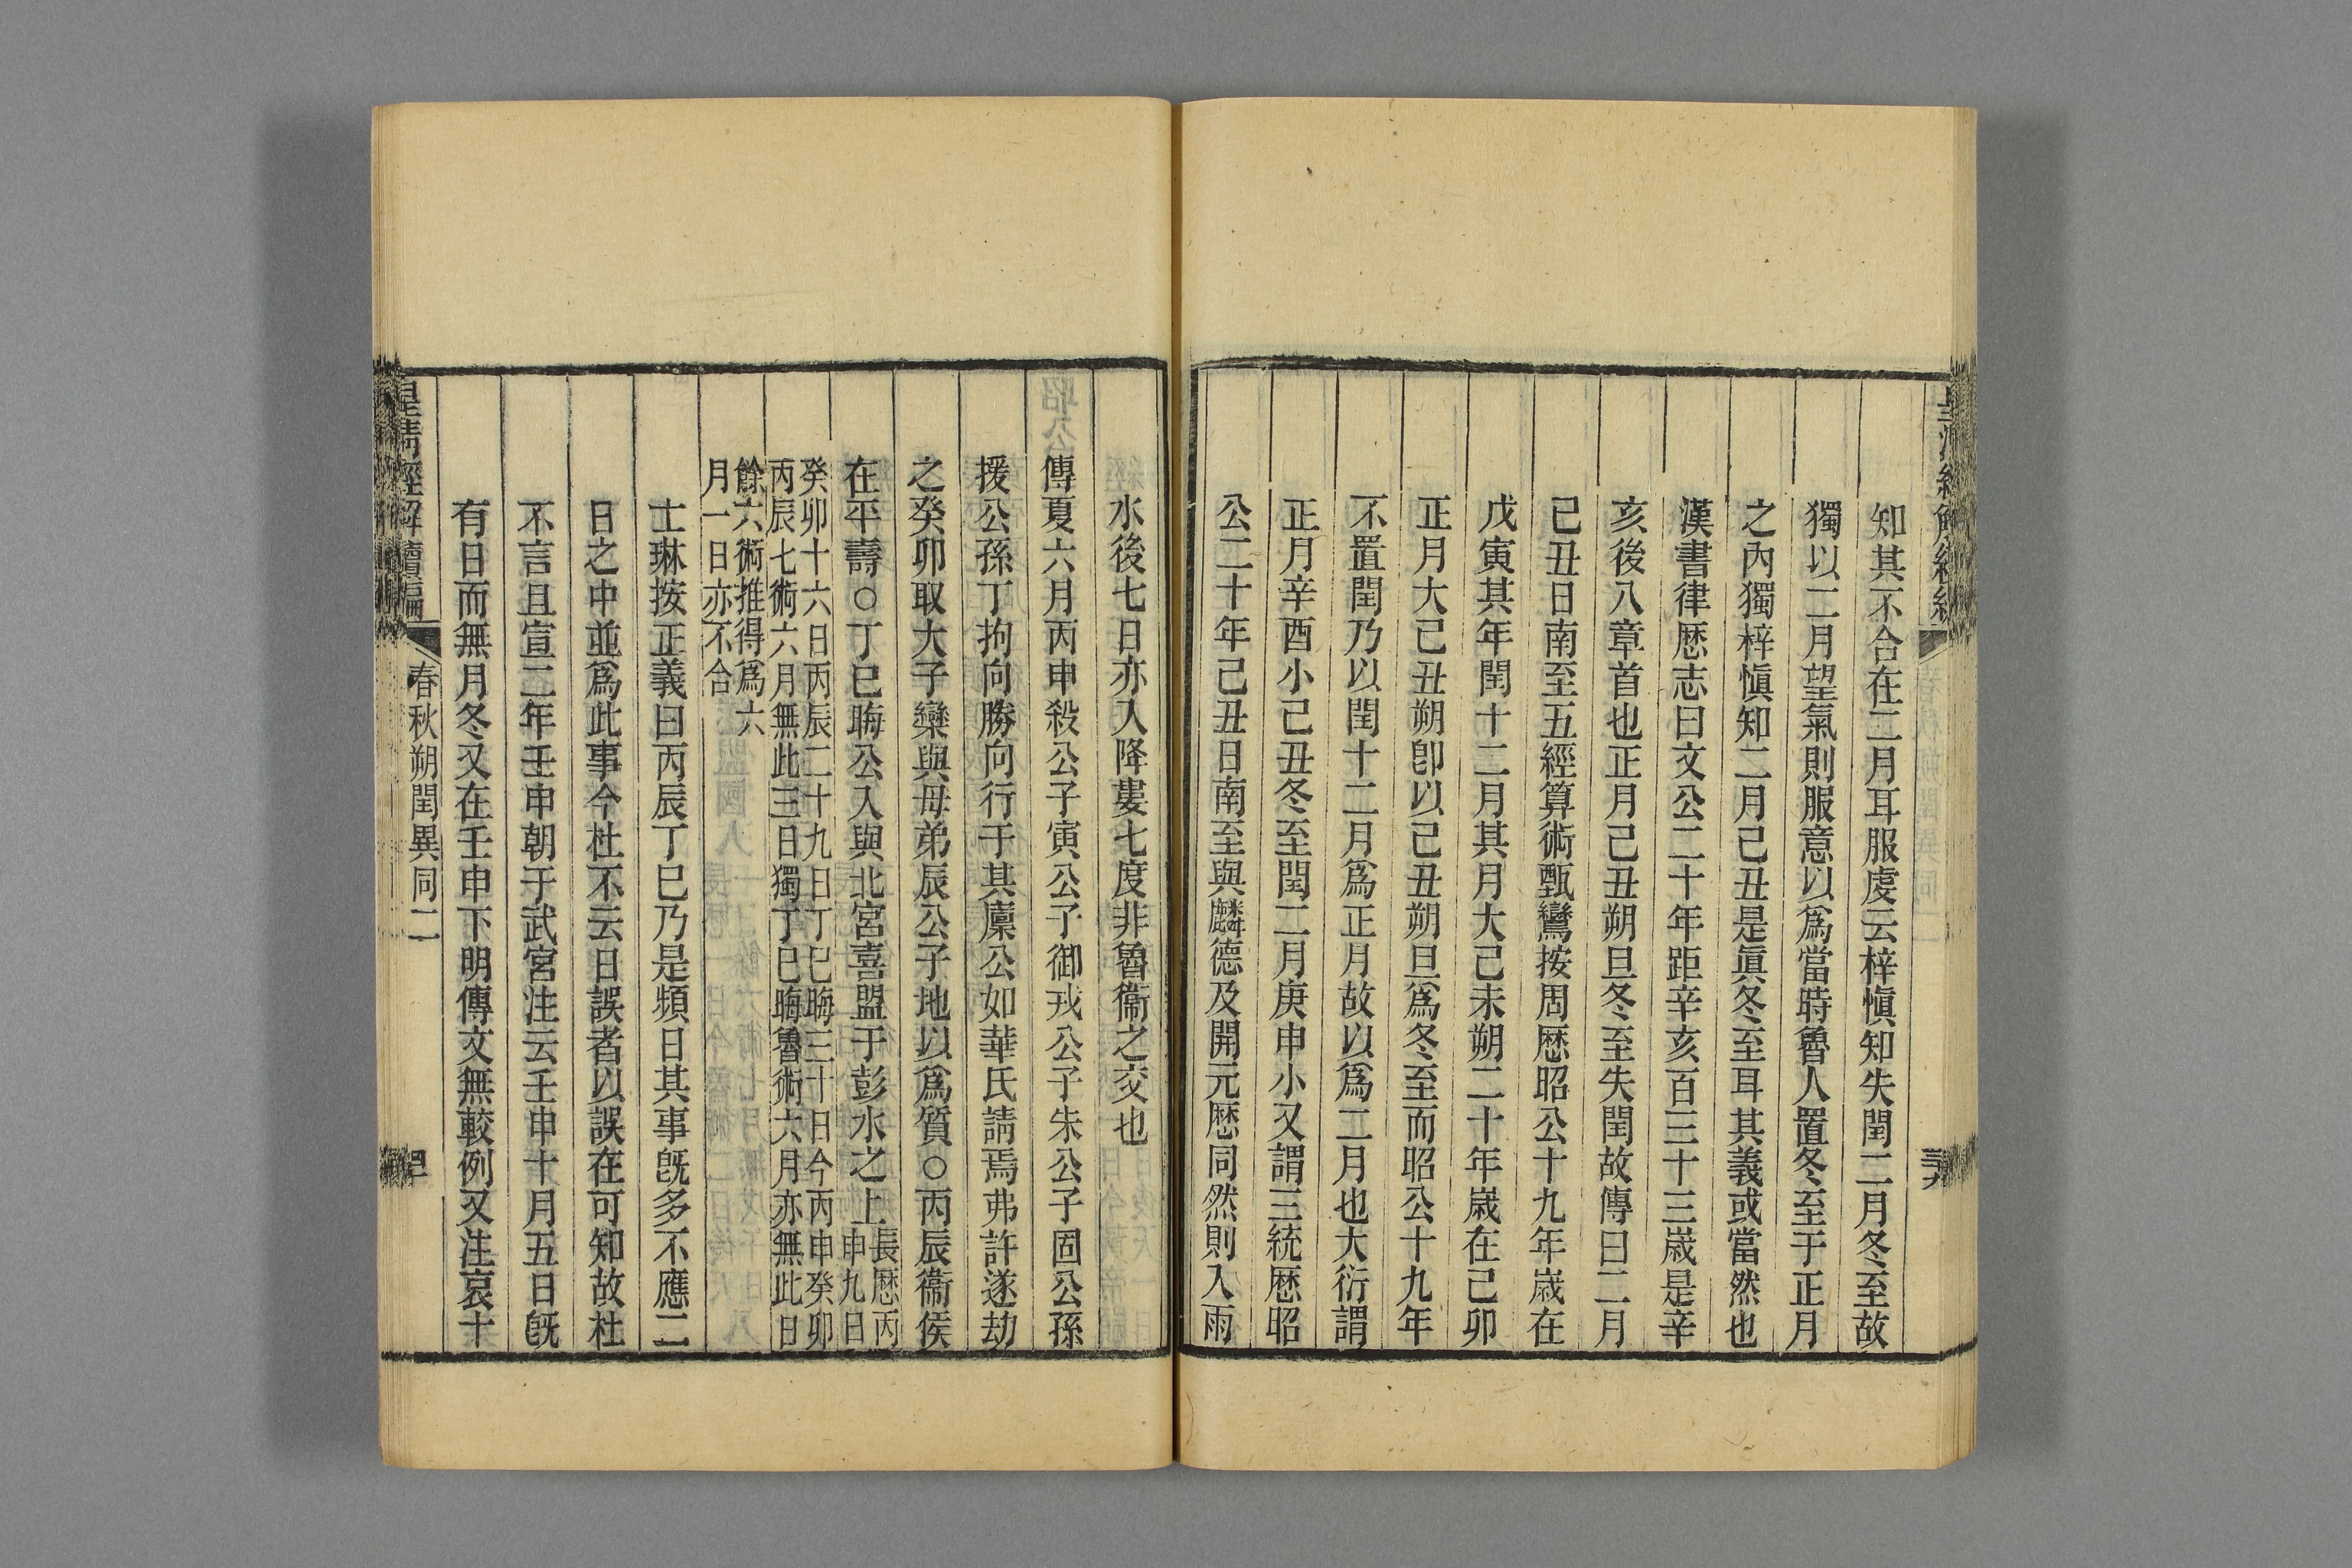 知其不合在二月耳服虔云梓愼知失閏二月冬至故
獨以二月望氣則服意以爲當時魯人置冬至于正月
之內獨梓愼知二月己丑是眞冬至耳其義或當然也
漢書律厯志曰文公二十年距辛亥百三十三嵗是辛
亥後八章首也正月己丑朔旦冬至失閏故傳曰二月
己丑日南至五經算術甄鸞按周厯昭公十九年嵗在
戊寅其年閏十二月其月大己未朔二十年嵗在己卯
正月大己丑朔卽以己丑朔旦爲冬至而昭公十九年
不置閏乃以閏十二月爲正月故以爲二月也大衍謂
正月辛酉小己丑冬至閏二月庚申小又謂三統厯昭
公二十年己丑日南至與麟德及開元厯同然則入雨
水後七日亦入降婁七度非魯衞之交也
傳夏六月丙申殺公子寅公子御戎公子朱公子固公孫
援公孫丁拘向勝向行于其廩公如華氏請焉弗許遂劫
之癸卯取大子欒與母弟辰公子地以爲質○丙辰衞侯
在平壽○丁巳晦公入與北宮喜盟于彭水之上長厯丙
申九日
癸卯十六日丙辰二十九日丁巳晦三十日今丙申癸卯
丙辰七術六月無此三日獨丁巳晦魯術六月亦無此日
餘六術推得爲六
月一日亦不合
士琳按正義曰丙辰丁巳乃是頻日其事旣多不應二
日之中並爲此事今杜不云日誤者以誤在可知故杜
不言且宣二年壬申朝于武宮注云壬申十月五日旣
有日而無月冬又在壬申下明傳文無較例又注哀十
皇清經解續編
春秋朔閏異同二